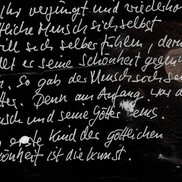 Ihr verjüngt und wiederho
ttliche Mensch sich selbst
will sich selber fühlen, daru
er seine Schönheit gegenüb
So gab der Mensch sich se
tter. Denn am Anfang war d
nsch und seine Götter eins.
erste Kind der göttlichen
önheit ist die Kunst.